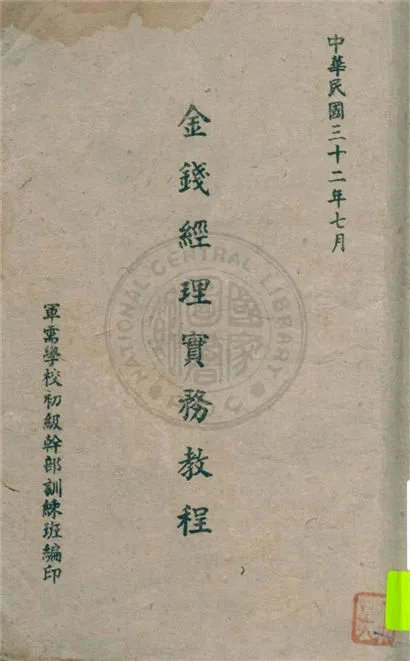 中華民國三十二年七月
金錢經理實務教程
軍需學校初級幹部訓練班編印
NATIONAL CENTRAL LIBRARY
國家圖書館